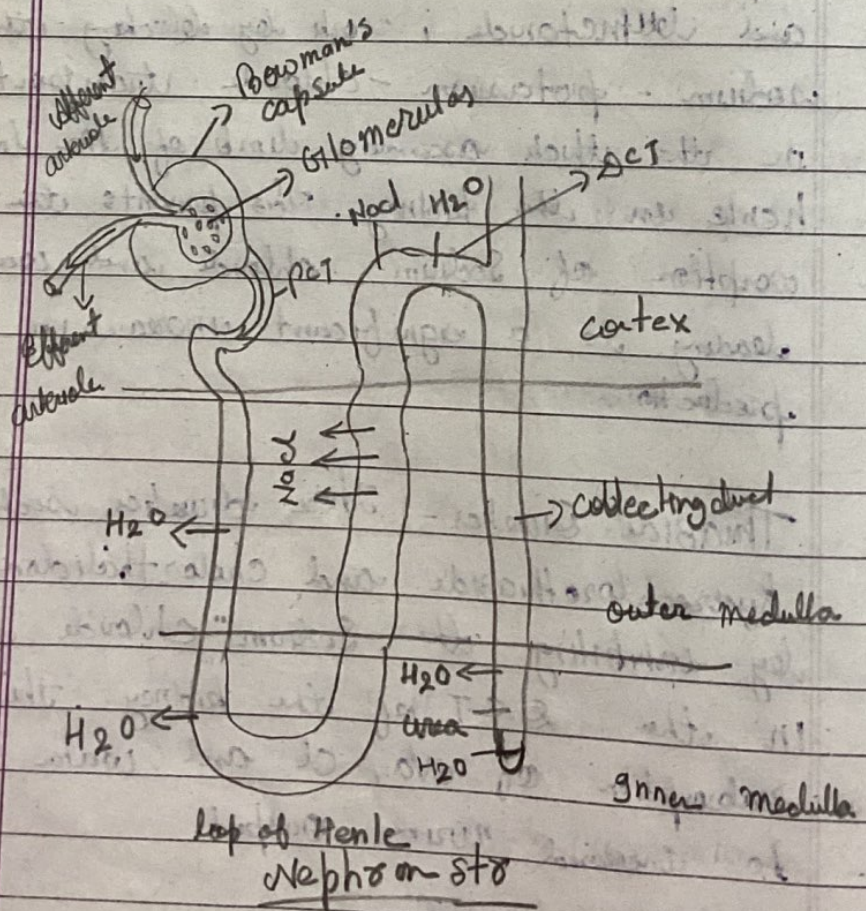 Afferent
arteriole
Bowman's
capsule
Glomerulas
DCT
Nacl
H2O
PCT
Efferent
arteriole
cortex
Nacl
H2O
collecting duct
outer medulla
H2O
urea
H2O
H2O
Inner medulla
loop of Henle
Nephron str